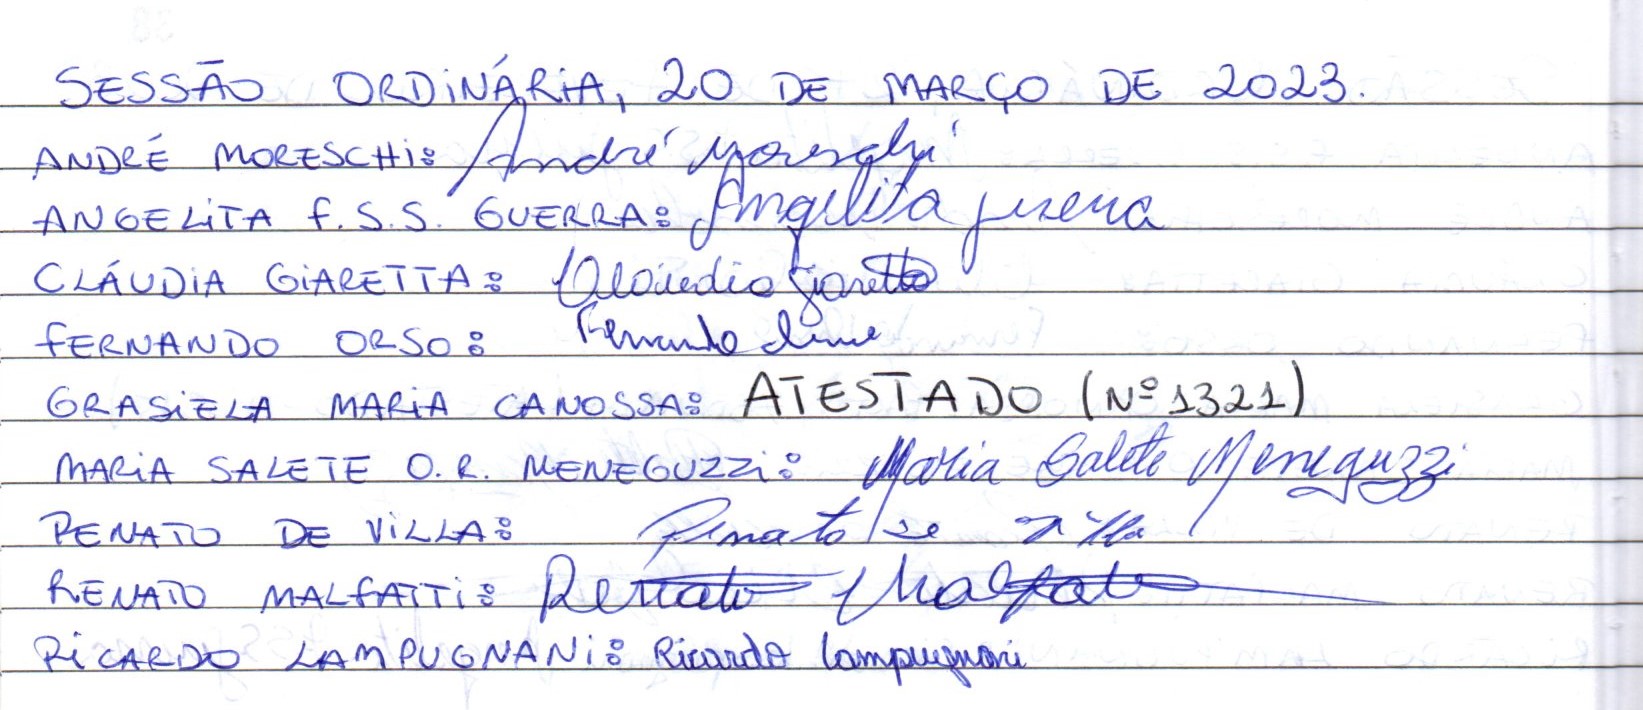 SESSÃO ORDINÁRIA, 20 DE MARÇO DE 2023.
ANDRÉ MORESCHI: André Moreschi
ANGELITA F.S.S. GUERRA: Angelita Guerra
CLÁUDIA GIARETTA: Claudia Giaretta
FERNANDO ORSO: Fernando
GRASIELA MARIA CANOSSA: ATESTADO (Nº 1321)
MARIA SALETE O.R. MENEGUZZI: Maria Salete Meneguzzi
RENATO DE VILLA: Renato de Villa
RENATO MALFATTI: Renato Malfatti
RICARDO LAMPUGNANI: Ricardo Lampugnani